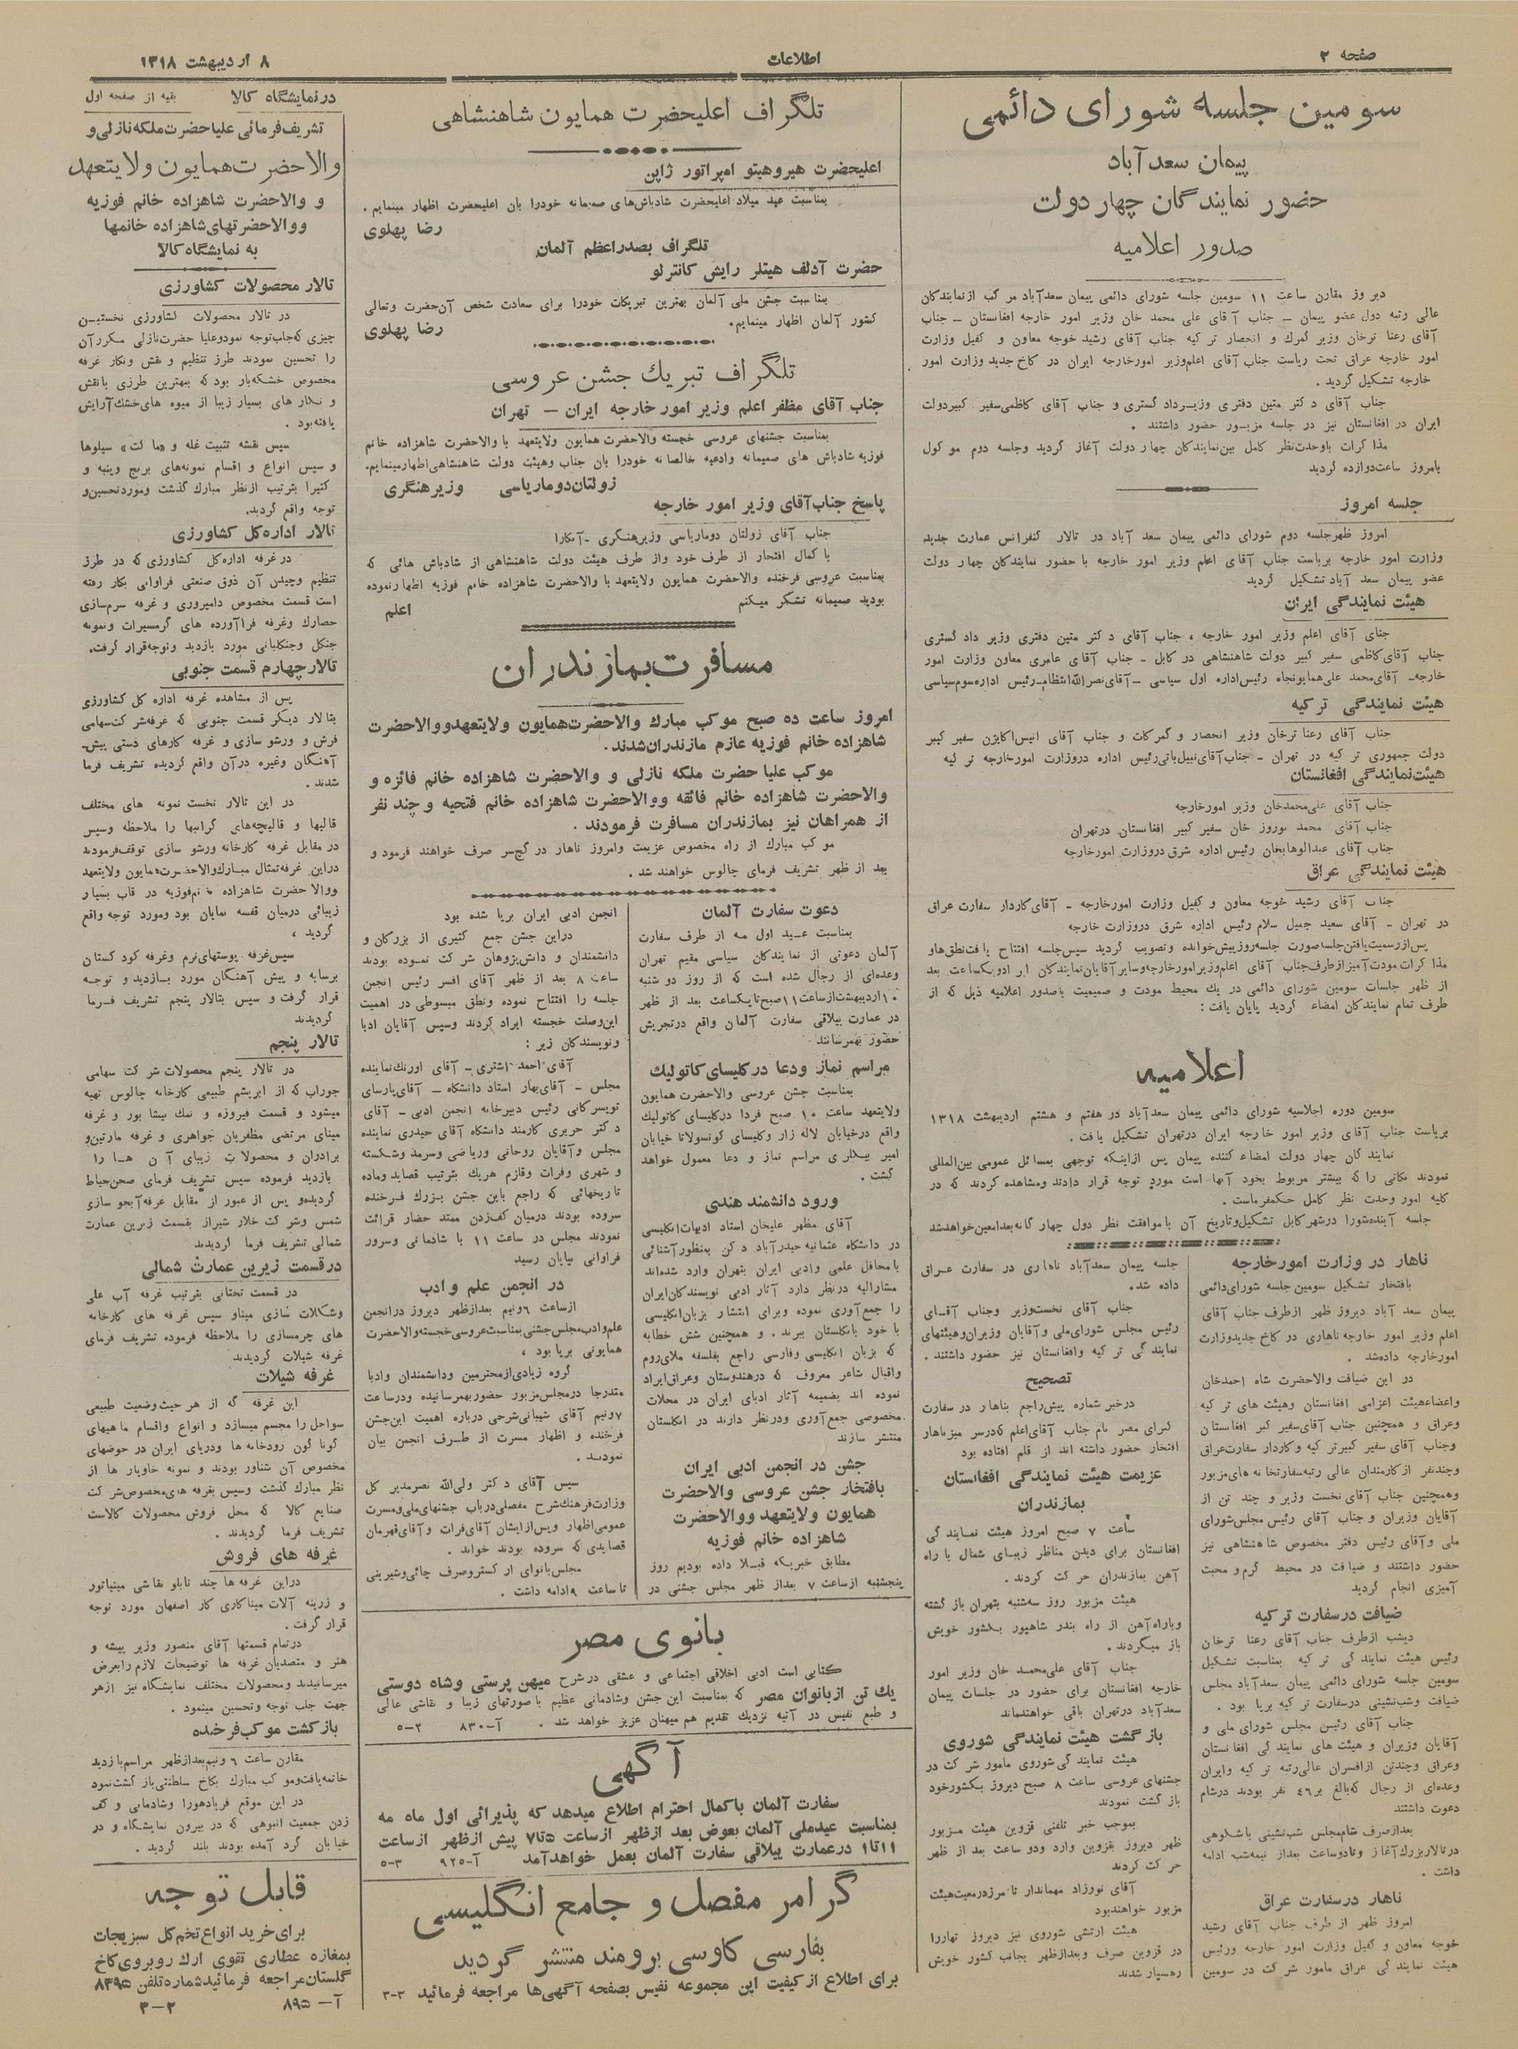 صفحه ۲
اطلاعات
۸ اردیبهشت ۱۳۱۸
سومین جلسه شورای دائمی
پیمان سعدآباد
حضور نمایندگان چهار دولت
صدور اعلامیه
دیروز مقارن ساعت ۱۱ سومین جلسه شورای دائمی پیمان سعدآباد مرکب از نمایندگان
عالی رتبه دول عضو پیمان – جناب آقای علی محمد خان وزیر امور خارجه افغانستان – جناب
آقای رعنا ترخان وزیر گمرک و انحصار ترکیه جناب آقای رشید خوجه معاون و کفیل وزارت
امور خارجه عراق تحت ریاست جناب آقای اعلم وزیر امور خارجه ایران در کاخ جدید وزارت امور
خارجه تشکیل گردید.
جناب آقای دکتر متین دفتری وزیر دادگستری و جناب آقای کاظمی سفیر کبیر دولت
ایران در افغانستان نیز در جلسه مزبور حضور داشتند.
مذاکرات با وحدت نظر کامل بین نمایندگان چهار دولت آغاز گردید و جلسه دوم موکول
بامروز ساعت دوازده گردید
جلسه امروز
امروز ظهر جلسه دوم شورای دائمی پیمان سعد آباد در تالار کنفرانس عمارت جدید
وزارت امور خارجه بریاست جناب آقای اعلم وزیر امور خارجه با حضور نمایندگان چهار دولت
عضو پیمان سعد آباد تشکیل گردید
هیئت نمایندگی ایران
جنای آقای اعلم وزیر امور خارجه ، جناب آقای دکتر متین دفتری وزیر دادگستری
جناب آقای کاظمی سفیر کبیر دولت شاهنشاهی در کابل – جناب آقای عامری معاون وزارت امور
خارجه – آقای محمد علی همایونجاه رئیس اداره اول سیاسی – آقای نصرالله انتظام رئیس اداره سوم سیاسی
هیئت نمایندگی ترکیه
جناب آقای رعنا ترخان وزیر انحصار و گمرکات و جناب آقای انیس اکایژن سفیر کبیر
دولت جمهوری ترکیه در تهران – جناب آقای نبیل باتی رئیس اداره در وزارت امور خارجه ترکیه
هیئت نمایندگی افغانستان
جناب آقای علی محمد خان وزیر امور خارجه
جناب آقای محمد نوروز خان سفیر کبیر افغانستان در تهران
جناب آقای عبدالوهابخان رئیس اداره شرق در وزارت امور خارجه
هیئت نمایندگی عراق
جناب آقای رشید خوجه معاون و کفیل وزارت امور خارجه – آقای کاردار سفارت عراق
در تهران – آقای سعید جمیل سلام رئیس اداره شرق در وزارت خارجه
پس از رسمیت یافتن جلسه صورت جلسه روز پیش خوانده و تصویب گردید سپس جلسه افتتاح یافت نطق‌ها و
مذاکرات مودت آمیز از طرف جناب آقای اعلم وزیر امور خارجه و سایر آقایان نمایندگان ایراد و یکساعت بعد
از ظهر جلسات سومین شورای دائمی در یک محیط مودت و صمیمیت با صدور اعلامیه ذیل که از
طرف تمام نمایندگان امضاء گردید پایان یافت:
اعلامیه
سومین دوره اجلاسیه شورای دائمی پیمان سعدآباد در هفتم و هشتم اردیبهشت ۱۳۱۸
بریاست جناب آقای وزیر امور خارجه ایران در تهران تشکیل یافت.
نمایندگان چهار دولت امضاء کننده پیمان پس از اینکه توجهی بمسائل عمومی بین‌المللی
نمودند نکاتی را که بیشتر مربوط بخود آنها است مورد توجه قرار دادند و مشاهده کردند که در
کلیه امور وحدت نظر کامل حکمفرماست.
جلسه آینده شورا در شهر کابل تشکیل و تاریخ آن با موافقت نظر دول چهارگانه بعدا معین خواهد شد
ناهار در وزارت امور خارجه
بافتخار تشکیل سومین جلسه شورای دائمی
پیمان سعد آباد دیروز ظهر از طرف جناب آقای
اعلم وزیر امور خارجه ناهاری در کاخ جدید وزارت
امور خارجه داده شد.
در این ضیافت والاحضرت شاه احمد خان
و اعضاء هیئت اعزامی افغانستان و هیئت های ترکیه
و عراق و همچنین جناب آقای سفیر کبیر افغانستان
و جناب آقای سفیر کبیر ترکیه و کاردار سفارت عراق
و چند نفر از کارمندان عالی رتبه سفارتخانه های مزبور
و همچنین جناب آقای نخست وزیر و چند تن از
آقایان وزیران و جناب آقای رئیس مجلس شورای
ملی و آقای رئیس دفتر مخصوص شاهنشاهی نیز
حضور داشتند و ضیافت در محیط گرم و محبت
آمیزی انجام گردید
ضیافت در سفارت ترکیه
دیشب از طرف جناب آقای رعنا ترخان
رئیس هیئت نمایندگی ترکیه بمناسبت تشکیل
سومین جلسه شورای دائمی پیمان سعدآباد مجلس
ضیافت و شب نشینی در سفارت ترکیه برپا بود.
جناب آقای رئیس مجلس شورای ملی و
آقایان وزیران و هیئت های نمایندگی افغانستان
و عراق و چندتن از افسران عالی رتبه ترکیه و ایران
و عده‌ای از رجال که بالغ بر ۴۶ نفر بودند در شام
دعوت داشتند
بعد از صرف شام مجلس شب نشینی باشکوهی
در تالار بزرگ آغاز و تا دو ساعت بعد از نیمه شب ادامه
داشت.
ناهار در سفارت عراق
امروز ظهر از طرف جناب آقای رشید
خوجه معاون و کفیل وزارت امور خارجه و رئیس
هیئت نمایندگی عراق مامور شرکت در سومین
جلسه پیمان سعدآباد ناهاری در سفارت عراق
داده شد.
جناب آقای نخست وزیر و جناب آقای
رئیس مجلس شورای ملی و آقایان وزیران و هیئتهای
نمایندگی ترکیه و افغانستان نیز حضور داشتند.
تصحیح
در خبر شماره پیش راجع بناهار در سفارت
کبرای مصر نام جناب آقای اعلم که در سر میز ناهار
افتخار حضور داشته اند از قلم افتاده بود
عزیمت هیئت نمایندگی افغانستان
بمازندران
ساعت ۷ صبح امروز هیئت نمایندگی
افغانستان برای دیدن مناظر زیبای شمال با راه
آهن بمازندران حرکت کردند.
هیئت مزبور روز سه‌شنبه بتهران بازگشته
و با راه آهن از راه بندر شاهپور بکشور خویش
باز میگردند.
جناب آقای علی محمد خان وزیر امور
خارجه افغانستان برای حضور در جلسات پیمان
سعدآباد در تهران باقی خواهند ماند
بازگشت هیئت نمایندگی شوروی
هیئت نمایندگی شوروی مامور شرکت در
جشنهای عروسی ساعت ۸ صبح دیروز بکشور خود
بازگشت نمودند
بموجب خبر تلفنی قزوین هیئت مزبور
ظهر دیروز بقزوین وارد و دو ساعت بعد از ظهر
حرکت کردند
آقای نورزاد مهماندار تا مرز در معیت هیئت
مزبور خواهند بود
هیئت ارتشی شوروی نیز دیروز نهار را
در قزوین صرف و بعد از ظهر بجانب کشور خویش
رهسپار شدند
تلگراف اعلیحضرت همایون شاهنشاهی
اعلیحضرت هیروهیتو امپراتور ژاپن
بمناسبت عید میلاد اعلیحضرت شادباش‌های صمیمانه خود را بان اعلیحضرت اظهار مینمایم.
رضا پهلوی
تلگراف بصدراعظم آلمان
حضرت آدلف هیتلر رایش کانترلو
بمناسبت جشن ملی آلمان بهترین تبریکات خود را برای سعادت شخص آن حضرت و تعالی
کشور آلمان اظهار مینمایم.
رضا پهلوی
تلگراف تبریک جشن عروسی
جناب آقای مظفر اعلم وزیر امور خارجه ایران – تهران
بمناسبت جشنهای عروسی خجسته والاحضرت همایون ولایتعهد با والاحضرت شاهزاده خانم
فوزیه شادباش های صمیمانه و ادعیه خالصانه خود را بان جناب و هیئت دولت شاهنشاهی اظهار مینمایم.
زولتان دوماریاسی وزیر هنگری
پاسخ جناب آقای وزیر امور خارجه
جناب آقای زولتان دوماریاسی وزیر هنگری – آنکارا
با کمال افتخار از طرف خود و از طرف هیئت دولت شاهنشاهی از شادباش هائی که
بمناسبت عروسی فرخنده والاحضرت همایون ولایتعهد با والاحضرت شاهزاده خانم فوزیه اظهار نموده
بودید صمیمانه تشکر میکنم
اعلم
مسافرت بمازندران
امروز ساعت ده صبح موکب مبارک والاحضرت همایون ولایتعهد و والاحضرت
شاهزاده خانم فوزیه عازم مازندران شدند.
موکب علیا حضرت ملکه نازلی و والاحضرت شاهزاده خانم فائزه و
والاحضرت شاهزاده خانم فائقه و والاحضرت شاهزاده خانم فتحیه و چند نفر
از همراهان نیز بمازندران مسافرت فرمودند.
موکب مبارک از راه مخصوص عزیمت و امروز ناهار در گچسر صرف خواهند فرمود و
بعد از ظهر تشریف فرمای چالوس خواهند شد.
دعوت سفارت آلمان
بمناسبت عید اول مه از طرف سفارت
آلمان دعوتی از نمایندگان سیاسی مقیم تهران
و عده‌ای از رجال شده است که از روز دو شنبه
۱۰ اردیبهشت از ساعت ۱۱ صبح تا یکساعت بعد از ظهر
در عمارت ییلاقی سفارت آلمان واقع در تجریش
حضور بهمرسانند
مراسم نماز و دعا در کلیسای کاتولیک
بمناسبت جشن عروسی والاحضرت همایون
ولایتعهد ساعت ۱۰ صبح فردا در کلیسای کاتولیک
واقع در خیابان لاله زار و کلیسای کونسولاتا خیابان
مراسم نماز و دعا معمول خواهد
گشت.
ورود دانشمند هندی
آقای مظهر علیخان استاد ادبیات انگلیسی
در دانشگاه عثمانیه حیدرآباد دکن بمنظور آشنائی
با محافل علمی و ادبی ایران بتهران وارد شده‌اند
مشارالیه در نظر دارد آثار ادبی نویسندگان ایران
را جمع آوری نموده و برای انتشار بزبان انگلیسی
با خود بانگلستان ببرند. و همچنین شش خطابه
که بزبان انگلیسی و فارسی راجع بفلسفه ملای روم
و اقبال شاعر معروف که در هندوستان و عراق ایراد
نموده اند بضمیمه آثار ادبای ایران در مجلات
مخصوصی جمع آوری و در نظر دارند در انگلستان
منتشر سازند
جشن در انجمن ادبی ایران
بافتخار جشن عروسی والاحضرت
همایون ولایتعهد و والاحضرت
شاهزاده خانم فوزیه
مطابق خبریکه قبلا داده بودیم روز
پنجشنبه از ساعت ۷ بعد از ظهر مجلس جشنی در
انجمن ادبی ایران برپا شده بود
در این جشن جمع کثیری از بزرگان و
دانشمندان و دانش‌پژوهان شرکت نموده بودند
ساعت ۸ بعد از ظهر آقای افسر رئیس انجمن
جلسه را افتتاح نموده و نطق مبسوطی در اهمیت
این وصلت خجسته ایراد کردند و سپس آقایان ادبا
و نویسندگان زیر:
آقای احمد اشتری – آقای اورنک نماینده
مجلس – آقای بهار استاد دانشگاه – آقای پارسای
تویسرکانی رئیس دبیرخانه انجمن ادبی – آقای
دکتر حریری کارمند دانشگاه آقای حیدری نماینده
مجلس و آقایان روحانی و ریاضی و سرمد و شکسته
و شهری و فرات و قازم هریک بترتیب قصاید و ماده
تاریخهائی که راجع باین جشن بزرک فرخنده
سروده بودند درمیان کف زدن ممتد حضار قرائت
نمودند مجلس در ساعت ۱۱ با شادمانی و سرور
فراوانی بپایان رسید
در انجمن علم و ادب
از ساعت ۶ ونیم بعد از ظهر دیروز در انجمن
علم و ادب مجلس جشنی بمناسبت عروسی خجسته والاحضرت
همایونی برپا بود ،
گروه زیادی از محترمین و دانشمندان و ادبا
متدرجا در مجلس مزبور حضور بهمرسانیده و در ساعت
۷ ونیم آقای شهبانی شرحی درباره اهمیت این جشن
فرخنده و اظهار مسرت از طرف انجمن بیان
نمودند.
سپس آقای دکتر ولی‌الله نصر مدیر کل
وزارت فرهنک شرح مفصلی در باب جشنهای ملی و مسرت
عمومی اظهار و پس از ایشان آقای فرات و آقای قهرمان
قصایدی که سروده بودند خواند.
مجلس با نوای ارکستر و صرف چائی و شیرینی
تا ساعت ۹ ادامه داشت.
بانوی مصر
کتابی است ادبی اخلاقی اجتماعی و عشقی در شرح میهن پرستی و شاه دوستی
یک تن از بانوان مصر که بمناسبت این جشن و شادمانی عظیم با صورتهای زیبا و نقاشی عالی
و طبع نفیس در آتیه نزدیک تقدیم هم میهنان عزیز خواهد شد. آ–۸۳۰ ۲–۵
آگهی
سفارت آلمان با کمال احترام اطلاع میدهد که پذیرائی اول ماه مه
بمناسبت عید ملی آلمان بعوض بعد از ظهر از ساعت ۵ تا ۷ پیش از ظهر از ساعت
۱۱ تا ۱ در عمارت ییلاقی سفارت آلمان بعمل خواهد آمد آ–۹۲۵ ۳–۵
گرامر مفصل و جامع انگلیسی
بفارسی کاوسی برومند منتشر گردید
برای اطلاع از کیفیت این مجموعه نفیس بصفحه آگهی‌ها مراجعه فرمائید ۳–۳
در نمایشگاه کالا
بقیه از صفحه اول
تشریف فرمائی علیا حضرت ملکه نازلی و
والاحضرت همایون ولایتعهد
و والاحضرت شاهزاده خانم فوزیه
و والاحضرتهای شاهزاده خانمها
به نمایشگاه کالا
تالار محصولات کشاورزی
در تالار محصولات کشاورزی نخستین
چیزی که جلب توجه نمود و علیا حضرت نازلی مکرر آن
را تحسین نمودند طرز تنظیم و نقش و نگار غرفه
مخصوص خشکه‌بار بود که ببهترین طرزی با نقش
و نگار های بسیار زیبا از میوه های خشک آرایش
یافته بود.
سپس نقشه تثبیت غله و «ماکت» سیلوها
و سپس انواع و اقسام نمونه‌های برنج و پنبه و
کتیرا بترتیب از نظر مبارک گذشت و مورد تحسین و
توجه واقع گردید.
تالار اداره کل کشاورزی
در غرفه اداره کل کشاورزی که در طرز
تنظیم و چیدن آن ذوق صنعتی فراوانی بکار رفته
است قسمت مخصوص دامپروری و غرفه سرم سازی
حصارک و غرفه فرآورده های گرمسیرات و نمونه
جنگل و جنگلبانی مورد بازدید و توجه قرار گرفت.
تالار چهارم قسمت جنوبی
پس از مشاهده غرفه اداره کل کشاورزی
بتالار دیگر قسمت جنوبی که غرفه شرکت سهامی
فرش و ورشو سازی و غرفه کارهای دستی پیش–
آهنگان و غیره در آن واقع گردیده تشریف فرما
شدند.
در این تالار نخست نمونه های مختلف
قالیها و قالیچه‌های گرانبها را ملاحظه و سپس
در مقابل غرفه کارخانه ورشو سازی توقف فرمودند
در این غرفه تمثال مبارک والاحضرت همایون ولایتعهد
و والاحضرت شاهزاده خانم فوزیه در قاب بسیار
زیبائی درمیان قفسه نمایان بود و مورد توجه واقع
گردید ،
سپس غرفه پوستهای نرم و غرفه کودکستان
برسابه و پیش آهنگان مورد بازدید و توجه
قرار گرفت و سپس بتالار پنجم تشریف فرما
گردیدند
تالار پنجم
در تالار پنجم محصولات شرکت سهامی
جوراب که از ابریشم طبیعی کارخانه چالوس تهیه
میشود و قسمت فیروزه و نمک نیشابور و غرفه
مینای مرتضی مظفریان جواهری و غرفه مارتین و
برادران و محصولات زیبای آن ها را
بازدید فرموده سپس تشریف فرمای صحن حیاط
گردیده و پس از عبور از مقابل غرفه آبجو سازی
شمس و شرکت خلار شیراز بقسمت زیرین عمارت
شمالی تشریف فرما گردیدند
در قسمت زیرین عمارت شمالی
در قسمت تحتانی بترتیب غرفه آب علی
و شکلات سازی مینا و سپس غرفه های کارخانه
های چرمسازی را ملاحظه فرموده تشریف فرمای
غرفه شیلات گردیدند
غرفه شیلات
این غرفه که از هر حیث وضعیت طبیعی
سواحل را مجسم میسازد و انواع و اقسام ماهیهای
گوناگون رودخانه ها و دریای ایران در حوضهای
مخصوص آن شناور بودند و نمونه خاویار ها از
نظر مبارک گذشت و سپس بغرفه های مخصوص شرکت
صنایع کالا که محل فروش محصولات کالاست
تشریف فرما گردیدند.
غرفه های فروش
در این غرفه ها چند تابلو نقاشی مینیاتور
و زرینه آلات میناکاری کار اصفهان مورد توجه
قرار گرفت.
در تمام قسمتها آقای منصور وزیر پیشه و
هنر و متصدیان غرفه ها توضیحات لازم را بعرض
میرسانیدند و محصولات مختلف نمایشگاه نیز از هر
جهت جلب توجه و تحسین مینمود.
بازگشت موکب فرخنده
مقارن ساعت ۶ ونیم بعد از ظهر مراسم بازدید
خاتمه یافت و موکب مبارک بکاخ سلطنتی بازگشت نمود
در این موقع فریاد هورا و شادمانی و کف
زدن جمعیت انبوهی که در بیرون نمایشگاه و در
خیابان گرد آمده بودند بلند گردید.
قابل توجه
برای خرید انواع تخم کل سبزیجات
بمغازه عطاری تقوی ارک روبروی کاخ
گلستان مراجعه فرمائید شماره تلفن ۸۳۹۵
آ– ۸۹۵ ۲–۳